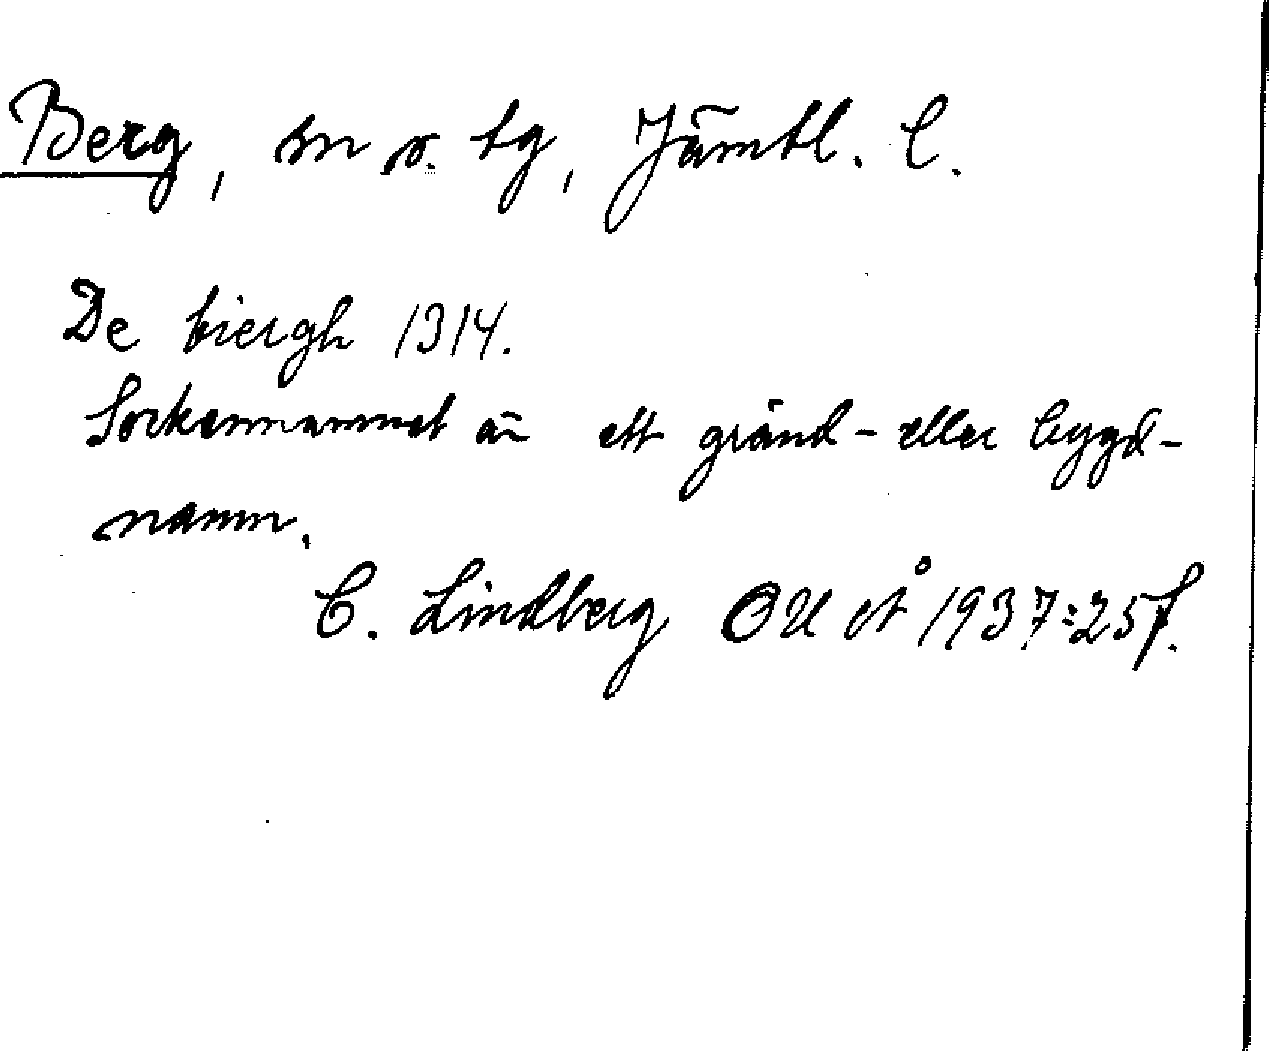 Berg, sn o. tg, Jämtl. l.
De biergh 1314.
Sockennamnet är ett gränd- eller bygd-
namn.
C. Lindberg OUÅ 1937:25f.